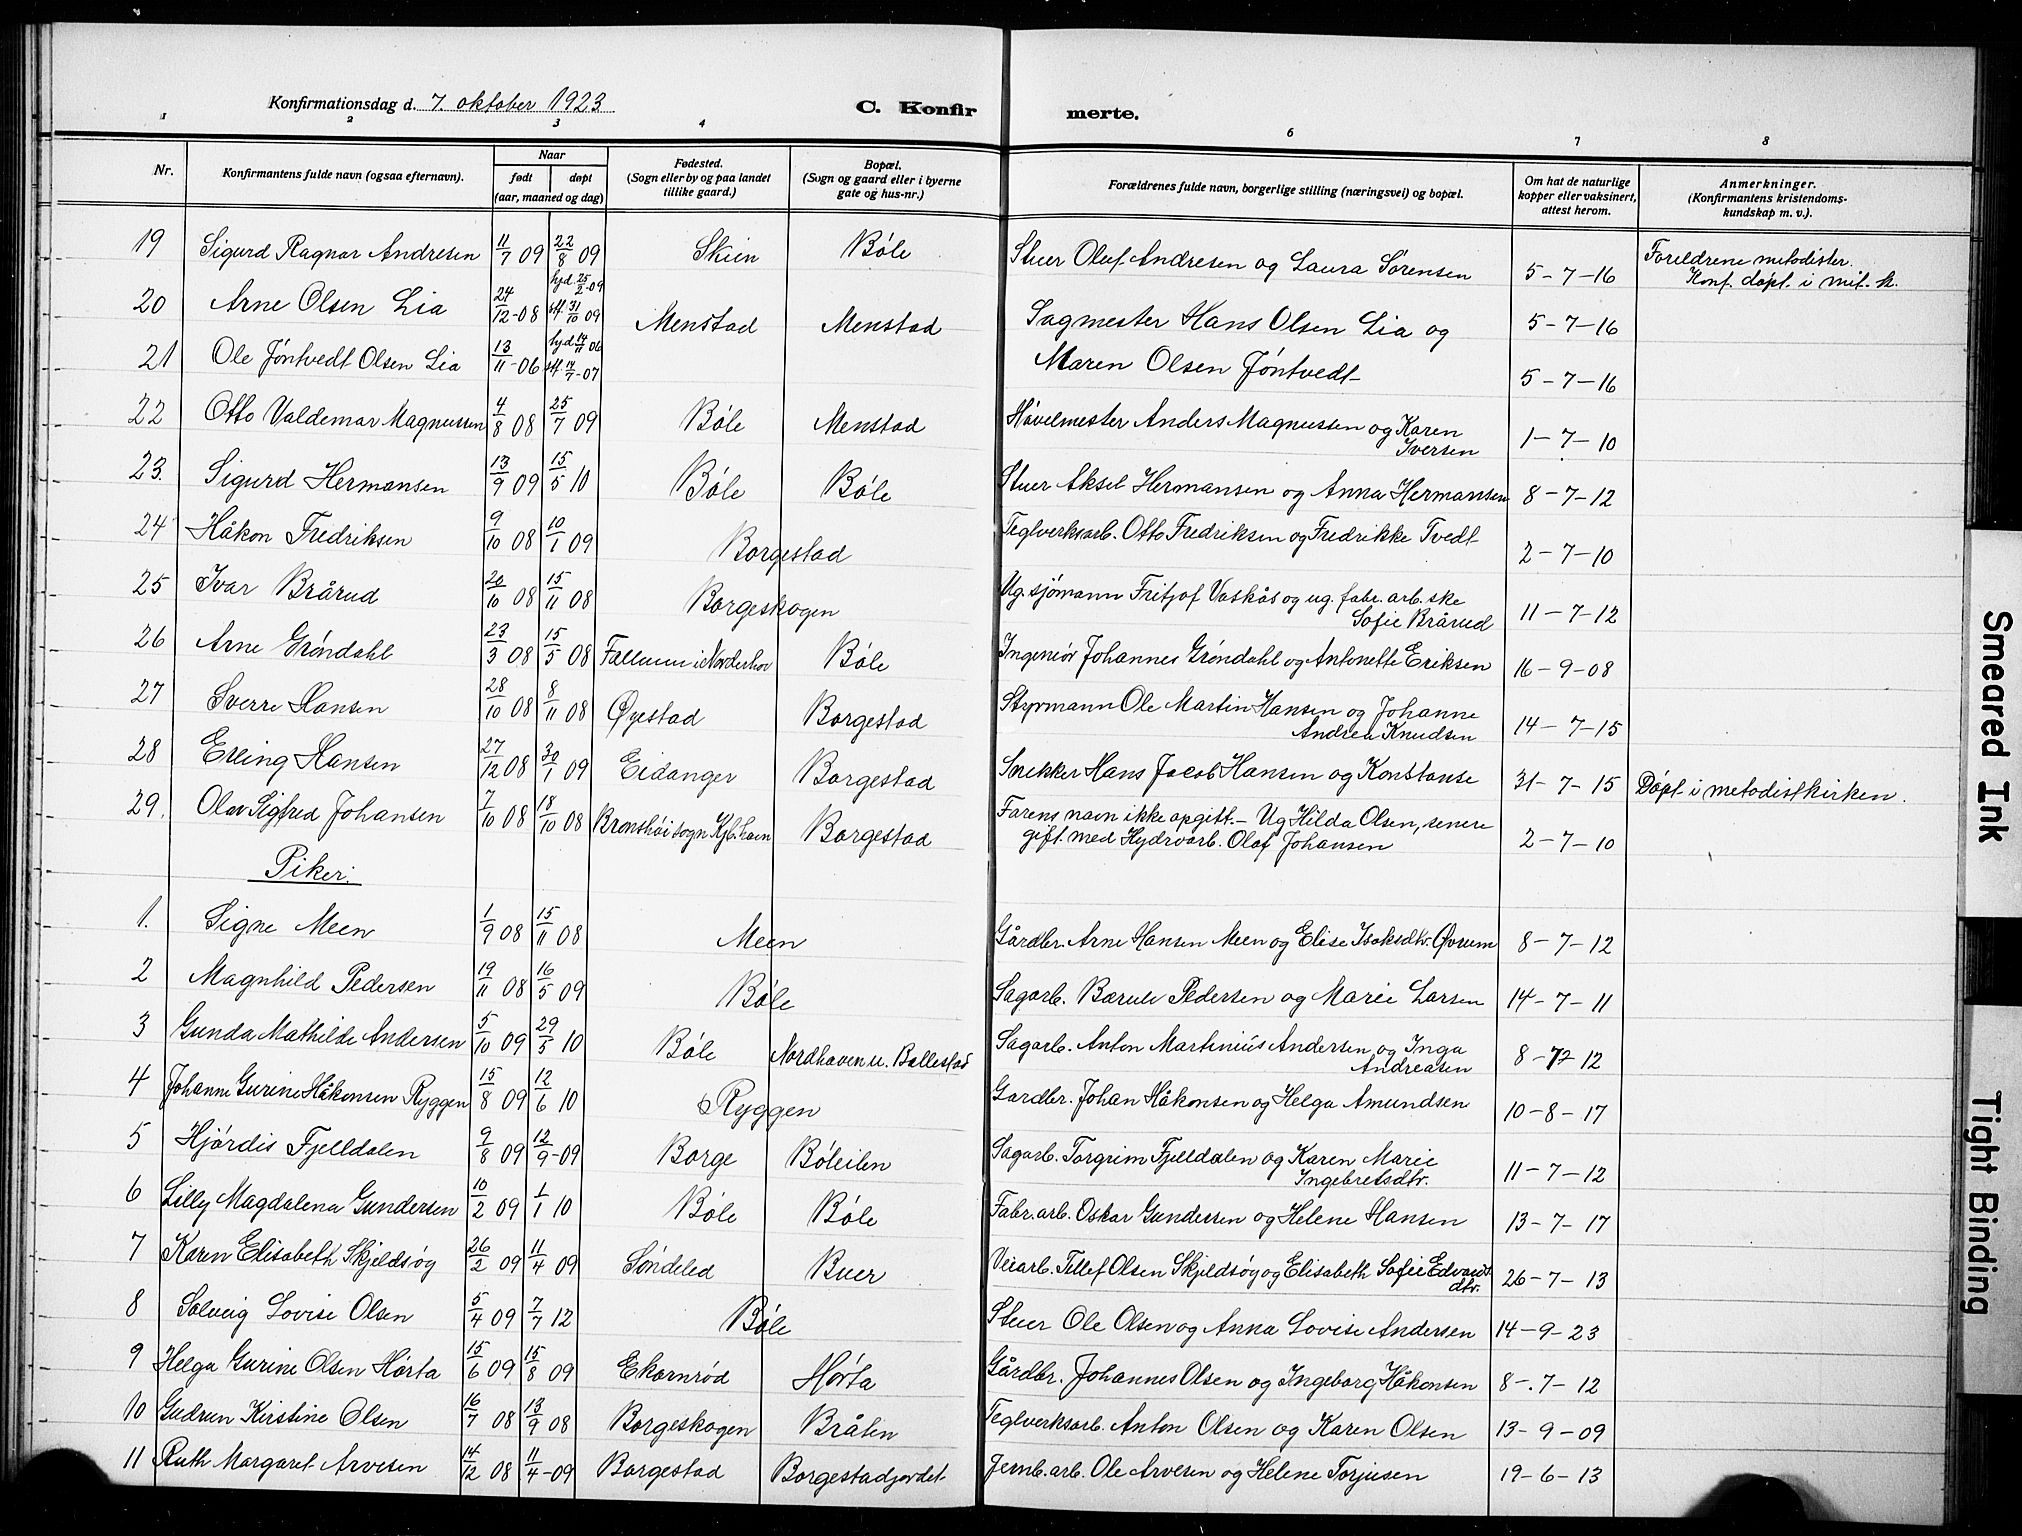 Konfirmationsdag d. 7. oktober 1923
C. Konfirmerte.
1 2 3 4 6 7 8
Nr. | Konfirmantens fulde navn (ogsaa efternavn). | Naar født døpt (aar, maaned og dag) | Fødested. (Sogn eller by og paa landet tillike gaard.) | Bopæl. (Sogn og gaard eller i byerne gate og hus-nr.) | Forældrenes fulde navn, borgerlige stilling (næringsvei) og bopæl. | Om hat de naturlige kopper eller vaksinert, attest herom. | Anmerkninger. (Konfirmantens kristendomskundskap m. v.).
19 Sigurd Ragnar Andresen 11/7 09 22/8 09 Skien Bøle Stuer Oluf Andresen og Laura Sørensen 5-7-16 Foreldrene metodister. Konf. døpt i met. k.
20 Arne Olsen Lia 24/12-08 hjd. 25/2-09 stf. 31/10 09 Menstad Menstad Sagmester Hans Olsen Lia og 5-7-16
21 Ole Jøntvedt Olsen Lia 13/11-06 hjd 14/11 06 stf. 14/7-07 Maren Olsen Jøntvedt 5-7-16
22 Otto Valdemar Magnussen 4/8 08 25/7 09 Bøle Menstad Høvelmester Anders Magnussen og Karen Iversen 1-7-10
23. Sigurd Hermansen 13/9 09 15/5 10 Bøle Bøle Stuer Aksel Hermansen og Anna Hermansen 8-7-12
24 Håkon Fredriksen 9/10 08 10/1 09 Borgestad Teglverksarb. Otto Fredriksen og Fredrikke Tvedt 2-7-10
25 Ivar Brårud 20/10 08 15/11 08 Borgeskogen Ug. sjømann Fritjof Vaskås og ug. fabr. arb. ske Sofie Brårud 11-7-12
26 Arne Grøndahl 23/3 08 15/5 08 Fallum i Norderhov Bøle Ingeniør Johannes Grøndahl og Antonette Eriksen 16-9-08
27 Sverre Hansen 28/10 08 8/11 08 Øyestad Borgestad Styrmann Ole Martin Hansen og Johanne Andrea Knudsen 14-7-15
28 Erling Hansen 27/12 08 30/1 09 Eidanger Borgestad Snekker Hans Jacob Hansen og Konstanse 31-7-15 Døpt i metodistkirken.
29. Olav Sigfred Johansen 7/10 08 18/10 08 Brønshøi sogn Kjb.havn Borgestad Farens navn ikke opgitt. - Ug Hilda Olsen, senere gift med Hydroarb. Olaf Johansen 2-7-10
Piker.
1. Signe Meen 1/9 08 15/11 08 Meen Gårdbr. Arne Hansen Meen og Elise Isaksdtr. Øvrum 8-7-12
2 Magnhild Pedersen 19/11 08 16/5 09 Bøle Sagarb. Bærule Pedersen og Marie Larsen 14-7-11
3 Gunda Mathilde Andersen 5/10 09 29/5 10 Bøle Nordhaven u. Bøllestad Sagarb. Anton Martinius Andersen og Inga Andreasen 8-7-12
4 Johanne Gurine Håkonsen Ryggen 15/8 09 12/6 10 Ryggen Gardbr. Johan Håkonsen og Helga Amundsen 10-8-17
5 Hjørdis Fjelldalen 9/8 09 12/9-09 Borge Bøleilen Sagarb. Torgrim Fjelldalen og Karen Marie Ingebretsdtr. 11-7-12
6 Lilly Magdalena Gundersen 10/2 09 1/1 10 Bøle Bøle Fabr. arb. Oskar Gundersen og Helene Hansen 13-7-17
7 Karen Elisabeth Skjeldsøy 26/2 09 11/4 09 Søndeled Buer Veiarb. Tellef Olsen Skjeldsøy og Elisabeth Sofie Edvardsdtr. 26-7-13
8 Solveig Lovise Olsen 5/4 09 7/7 12 Bøle Stuer Ole Olsen og Anna Lovise Andersen 14-9-23
9 Helga Gurine Olsen Hørta 15/6 09. 15/8 09 Ekornrød Hørta Gårdbr. Johannes Olsen og Ingeborg Håkonsen 8-7-12
10 Gudrun Kirstine Olsen 16/7 08 13/9 08 Borgeskogen Bråten Teglverksarb. Anton Olsen og Karen Olsen 13-9-09
11 Ruth Margaret Arvesen 14/12 08 11/4-09 Borgestad Borgestadjordet Jernb. arb. Ole Arvesen og Helene Torjusen 19-6-13
Smeared Ink
Tight Binding